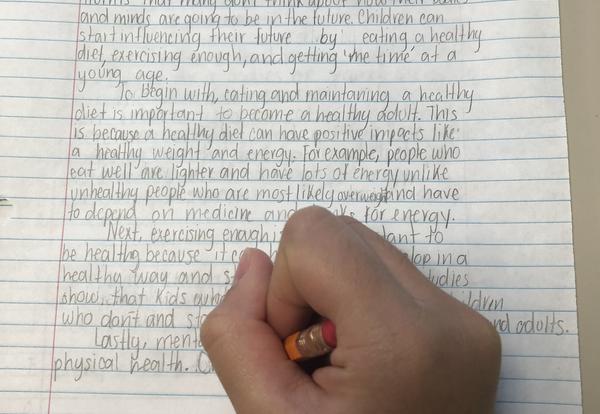 and minds are going to be in the future. Children can
start influencing their future by eating a healthy
diet, exercising enough, and getting 'me time' at a
young age.
To begin with, eating and maintaning a healthy
diet is important to become a healthy adult. This
is because a healthy diet can have positive impacts like
a healthy weight and energy. For example, people who
eat well are lighter and have lots of energy unlike
unhealthy people who are most likely overweight and have
to depend on medicine and for energy.
Next, exercising enough to
be healthy because it in a
healthy way and
show, that kids
who don't and and adults.
Lastly,
physical health.